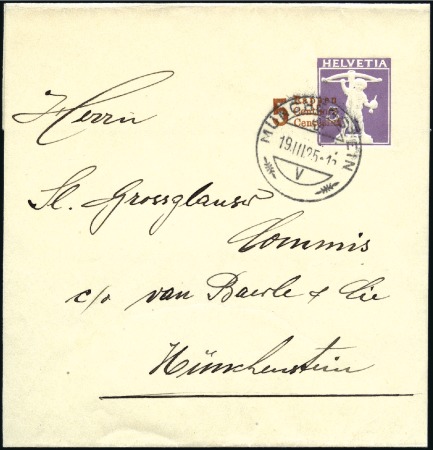 HELVETIA
5 Rappen
Centimes
Centesimi
MÜNCHENSTEIN
19.III.25-1
V
Herrn
St. Grossglauser
Commis
c/o van Baerle & Cie
Münchenstein